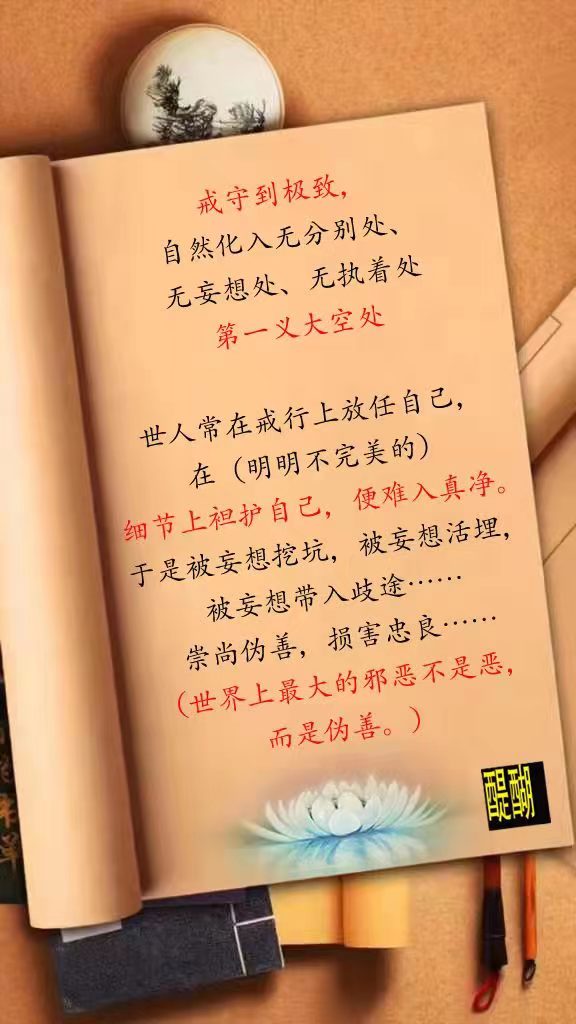 戒守到极致，
自然化入无分别处、
无妄想处、无执着处
第一义大空处
世人常在戒行上放任自己，
在（明明不完美的）
细节上袒护自己，便难入真净。
于是被妄想挖坑，被妄想活埋，
被妄想带入歧途……
崇尚伪善，损害忠良……
（世界上最大的邪恶不是恶，
而是伪善。）
醍醐